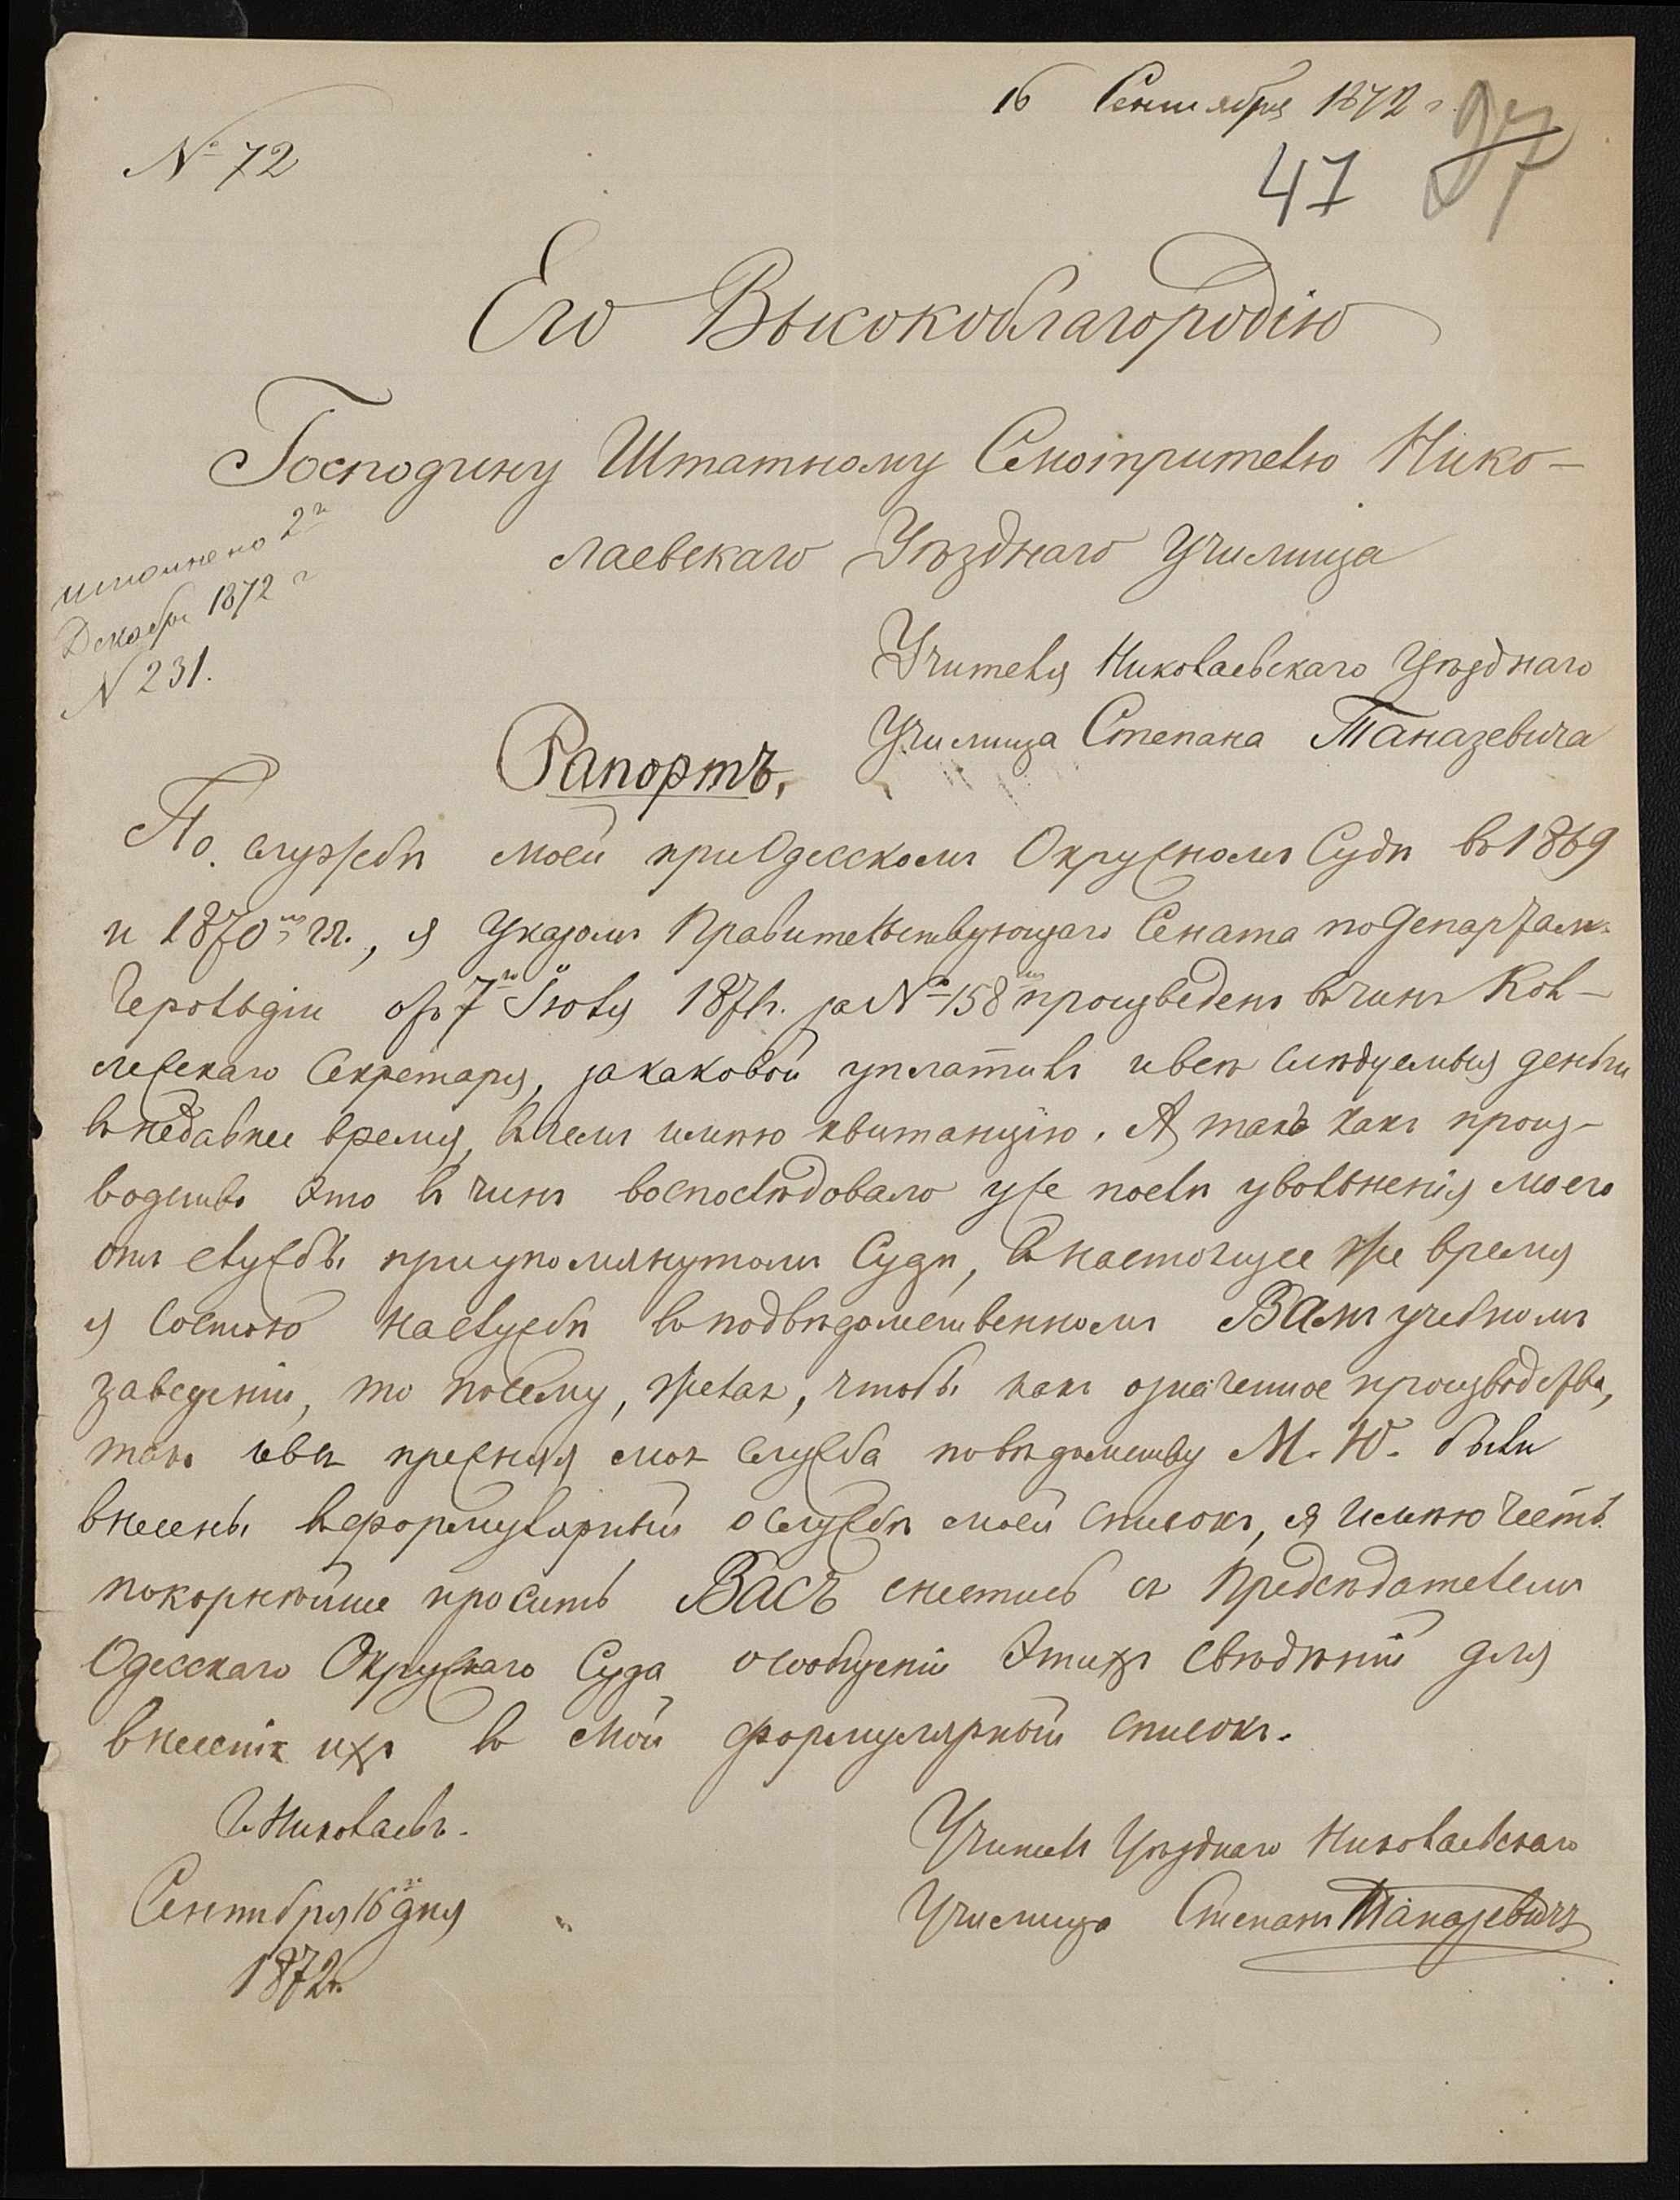 16 Сентября 1872 г.
№ 72
47
Его Высокоблагородію
Господину Штатному Смотрителю Нико-
лаевскаго Уѣзднаго Училища
исполнено 2го
Декабря 1872 г
N 231.
Учителя Николаевскаго Уѣзднаго
Училища Степана Таназевича
Рапортъ.
По службѣ моей при Одесскомъ Окружномъ Судѣ въ 1869
и 1870мъ гг., я Указомъ Правительствующаго Сената по Департам.
Герольдіи отъ 7го Іюля 1871г. за № 158мъ произведенъ въ чинъ Кол-
лежскаго Секретаря, за каковой уплатилъ и всѣ слѣдуемыя деньги
въ недавнее время, въ чемъ имѣю квитанцію. А такъ какъ произ-
водство это въ чинъ воспослѣдовало уже послѣ увольненія моего
отъ службы при упомянутомъ Судѣ, въ настоящее же время
я состою на службѣ въ подвѣдомственномъ Вамъ учебномъ
заведеніи, то посему, желая, чтобы какъ означенное производство,
такъ и вся прежняя моя служба по вѣдомству М. Ю. были
внесены въ формулярный о службѣ моей списокъ, я имѣю честь
покорнѣйше просить Васъ снестись съ Предсѣдателемъ
Одесскаго Окружнаго Суда о сообщеніи этихъ свѣдѣній для
внесенія ихъ въ мой формулярный списокъ.
Г. Николаевъ.
Сентября 16го дня
1872г.
Учитель Уѣзднаго Николаевскаго
Училища Степанъ Таназевичъ